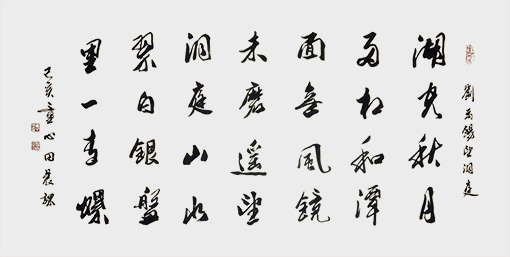 劉禹錫望洞庭
湖光秋月
兩相和潭
面無風鏡
未磨遙望
洞庭山水
翠白銀盤
里一青螺
己亥童心田晨課